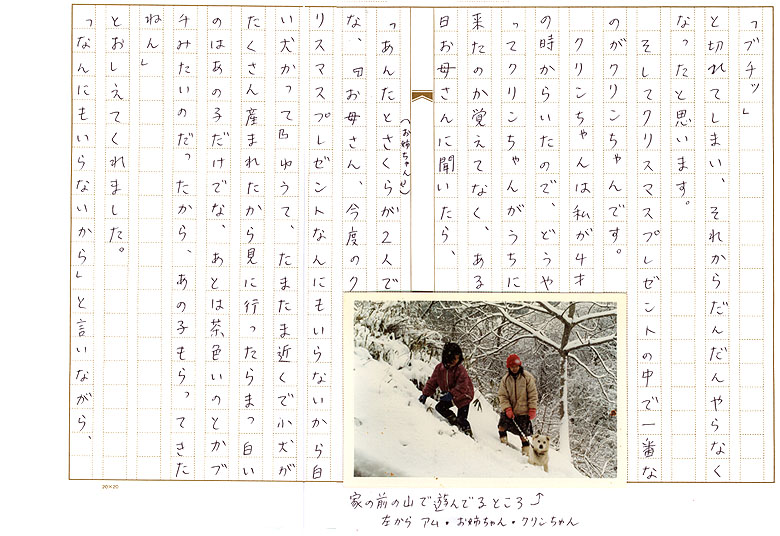 「ブチッ」
と切れてしまい、それからだんだんやらなく
なったと思います。
そしてクリスマスプレゼントの中で一番な
のがクリンちゃんです。
クリンちゃんは私が4才
の時からいたので、どうや
ってクリンちゃんがうちに
来たのか覚えてなく、ある
日お母さんに聞いたら、
(お姉ちゃん)
「あんたとさくらが2人で
な、『お母さん、今度のク
リスマスプレゼントなんにもいらないから白
い犬かって』ゆうて、たまたま近くで小犬が
たくさん産まれたから見に行ったらまっ白い
のはあの子だけでな、あとは茶色いのとかブ
チみたいのだったから、あの子もらってきた
ねん」
とおしえてくれました。
「なんにもいらないから」と言いながら、
20×20
家の前の山で遊んでるところ↑
左から アム・お姉ちゃん・クリンちゃん